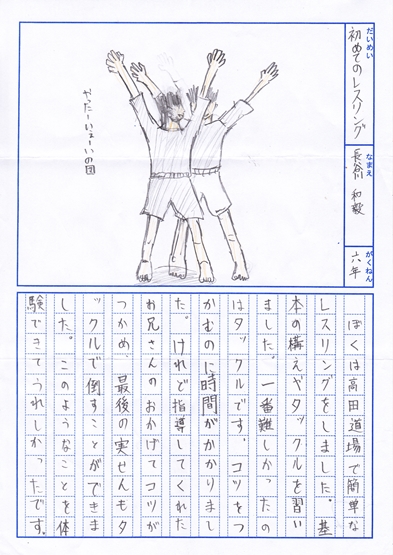 だいめい
初めてのレスリング
なまえ
長谷川 和毅
がくねん
六年
やったーいえーいの図
ぼくは高田道場で簡単な
レスリングをしました。基
本の構えやタックルを習い
ました。一番難しかったの
はタックルです。コツをつ
かむのに時間がかかりまし
た。けれど指導してくれた
お兄さんのおかげでコツが
つかめ、最後の実せんもタ
ックルで倒すことができま
した。このようなことを体
験できてうれしかったです。